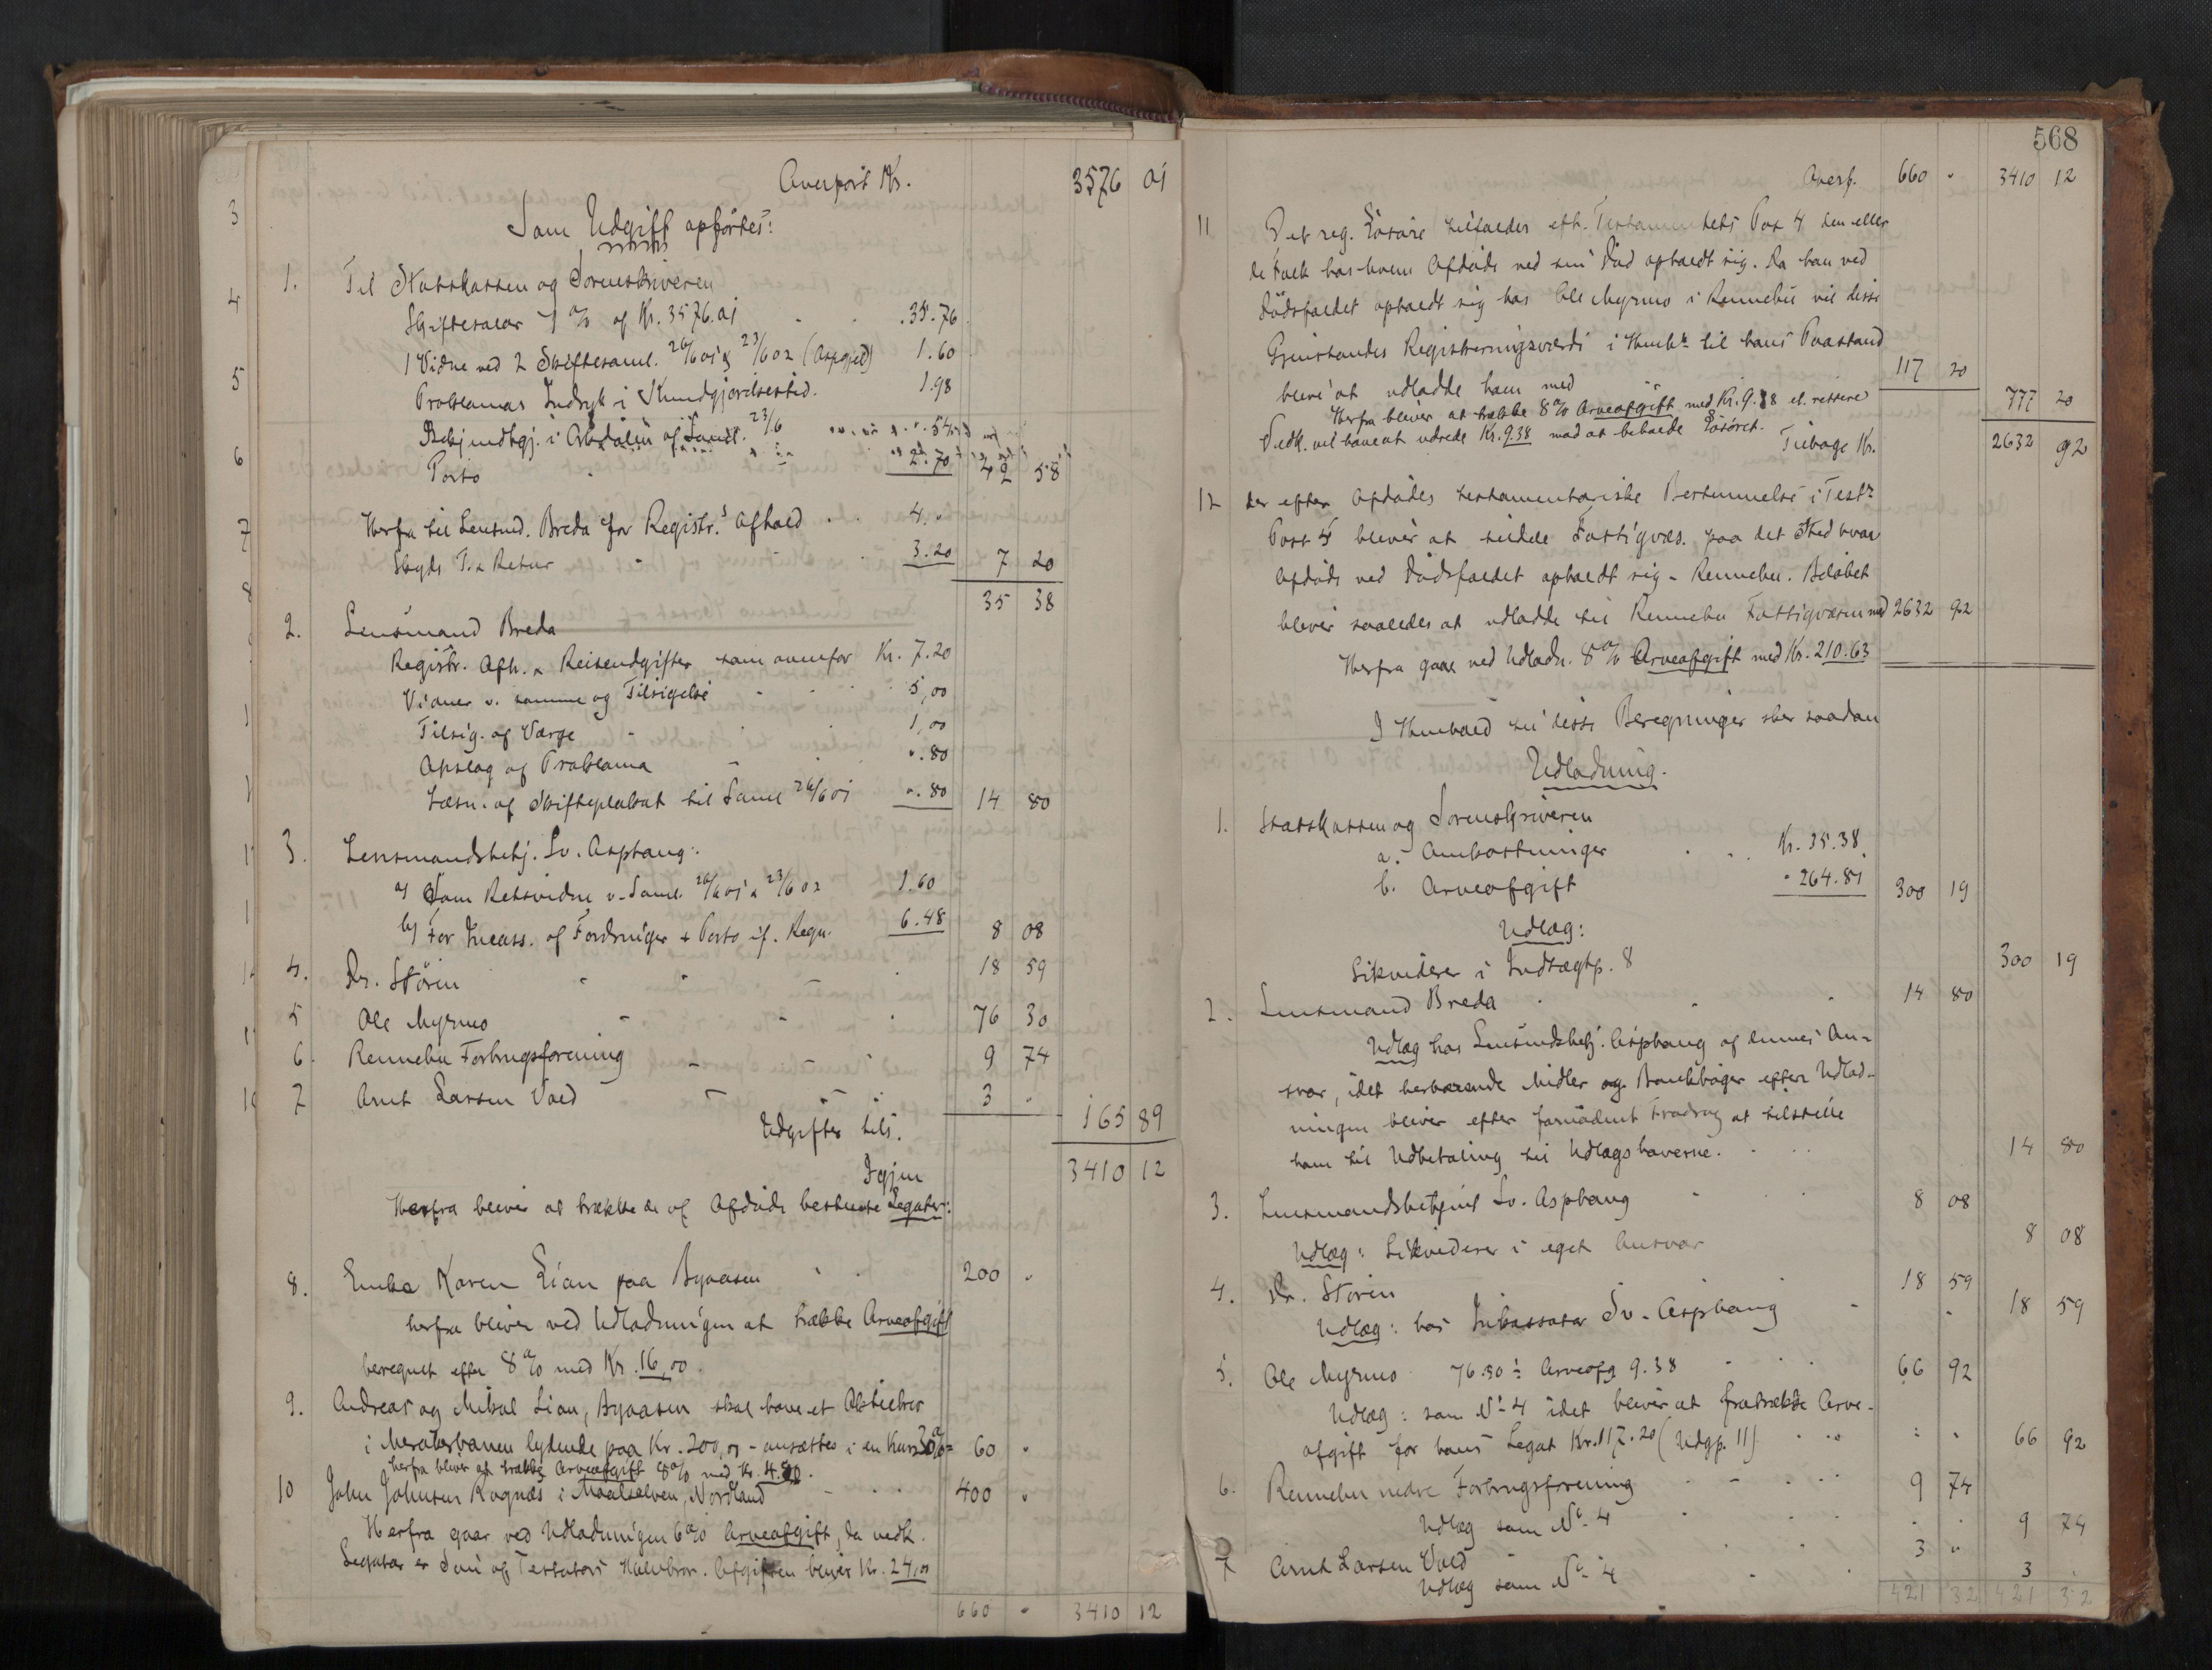 Overført Kr. 3576 01
Som Udgift opførtes:
1. Til Statskassen og Sorenskriveren
Skiftesalær 1 % af Kr. 3576.01 . . 35.76
1 Vidne ved 2 Skiftesaml. 26/6 01 & 23/6 02 1.60
Proklamas Indryk. i Kundgjørelsestid. 1.98
Bekjendtgj. i Arbdølen af Saml. 23/6 .54
Porto 2.70 42 58
Herfra til Lensmd. Breda for Registr.s Afhold . . 4. „
Skyds T. & Retur 3.20 7 20
35 38
2. Lensmand Breda
Registr. Afh. & Reiseudgifter som ovenfor Kr. 7.20
Vidner v. samme og Tilsigelse 5,00
Tilsig. af Værge 1,00
Opslag af Proklama „.80
Læsn. af Skifteplakat til Saml 26/6 01 „.80 14 80
3. Lensmandsbetj. Sv. Asphaug:
a) Som Retsvidne v. Saml. 26/6 01 & 23/6 02 1.60
b) For Incass. af Fordringer & Porto if. Regn. 6.48 8 08
4. Dr. Stören 18 59
5 Ole Myrmo 76 30
6. Rennebu Forbrugsforening 9 74
7 Arnt Larsen Vold 3 „
Udgifter tils. 165 89
Igjen 3410 12
Herfra bliver at trække de af Afdøde bestemte Legater:
8. Enke Karen Lian paa Byaasen 200 „
herfra bliver ved Udlodningen at trække Arveafgift
beregnet efter 8 % med Kr. 16,00.
9. Andreas og Mikal Lian, Byaasen skal have et Aktiebrev
i Merakerbanen lydende paa Kr. 200,00 - ansættes i en Kurs 30% = 60 „
herfra bliver at trække Arveafgift 8 % med Kr. 4.80.
10 John Johnsen Rognæs i Maalselven, Nordland 400 „
Herfra gaar ved Udlodningen 6 % Arveafgift, da vedk.
Legatar er Søn af Testators Halvbror. Afgiften bliver Kr. 24,00
660 „ 3410 12
568
Overf. 660 „ 3410 12
11 Det reg. Løsøre tilfalder efter Testamentets Post 4 den eller
de Folk hos hvem Afdøde ved sin Død opholdt sig. Da han ved
Dødsfaldet opholdt sig hos Ole Myrmo i Rennebu vil disse
Gjenstandes Registreringsværdi i Henh. til hans Paastand
blive at udlodde ham med 117 20
Herfra bliver at trække 8 % Arveafgift med Kr. 9.38 el. rettere 777 20
Vedk. vil have at udrede Kr. 9.38 mod at beholde Løsøret.
Tilbage Kr. 2632 92
12 der efter Afdødes testamentariske Bestemmelse i Test.
Post 4 bliver at tilfalde Fattigvæs. paa det Sted hvor
Afdøde ved Dødsfaldet opholdt sig - Rennebu. Beløbet
bliver saaledes at udlodde til Rennebu Fattigvæsen med 2632 92
Herfra gaar ved Udlodn. 8 % Arveafgift med Kr. 210.63
I Henhold til disse Beregninger sker saadan
Udlodning.
1. Statskassen og Sorenskriveren
a. Omkostninger Kr. 35.38
b. Arveafgift " 264.81 300 19
Udlæg:
Likviderer i Indtægtp. 8 300 19
2. Lensmand Breda 14 80
Udlæg hos Lensmdsbetj. Asphaug af dennes An-
svar, idet herværende Midler og Bankbøger efter Udlod-
ningen bliver efter fornødent Fradrag at tilstille
ham til Udbetaling til Udlægshaverne. 14 80
3. Lensmandsbetjent Sv. Asphaug 8 08
Udlæg: Likviderer i eget Ansvar 8 08
4. Dr. Stören 18 59
Udlæg: hos Inkassator Sv. Asphaug 18 59
5. Ole Myrmo 76.30 ÷ Arveafg 9.38 66 92
Udlæg: som No 4 idet bliver at fratrække Arve-
afgift for hans Legat Kr. 117.20 (Udgp. 11) 66 92
6. Rennebu nedre Forbrugsforening 9 74
Udlæg som No 4 9 74
7 Arnt Larsen Vold 3 „
Udlæg som No 4 3
421 32 421 32